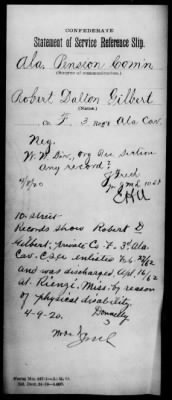 CONFEDERATE
Statement of Service Reference Slip.
Ala. Pension Com'n
(Source of communication.)
Robert Dalton Gilbert
(Name.)
Co. F, 3 Reg't Ala Cav.
Neg.
W. W. Div., Org Rec Section
any record?
4/8/20
EHA
10. street
Records show Robert D
Gilbert, private Co F. 3d Ala.
Cav. C.S.A. enlisted
and was discharged Apr. 16/62
at Rienzi, Miss. by reason
of physical disability.
4-9-20. Donnelly